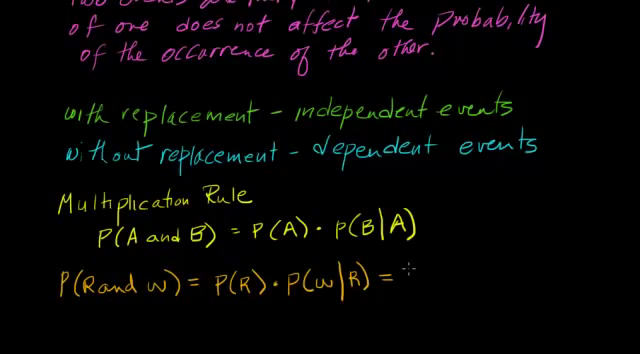 of one does not affect the probability
of the occurrence of the other.
with replacement - independent events
without replacement - dependent events
Multiplication Rule
P(A and B) = P(A) · P(B|A)
P(R and W) = P(R) · P(W|R) =